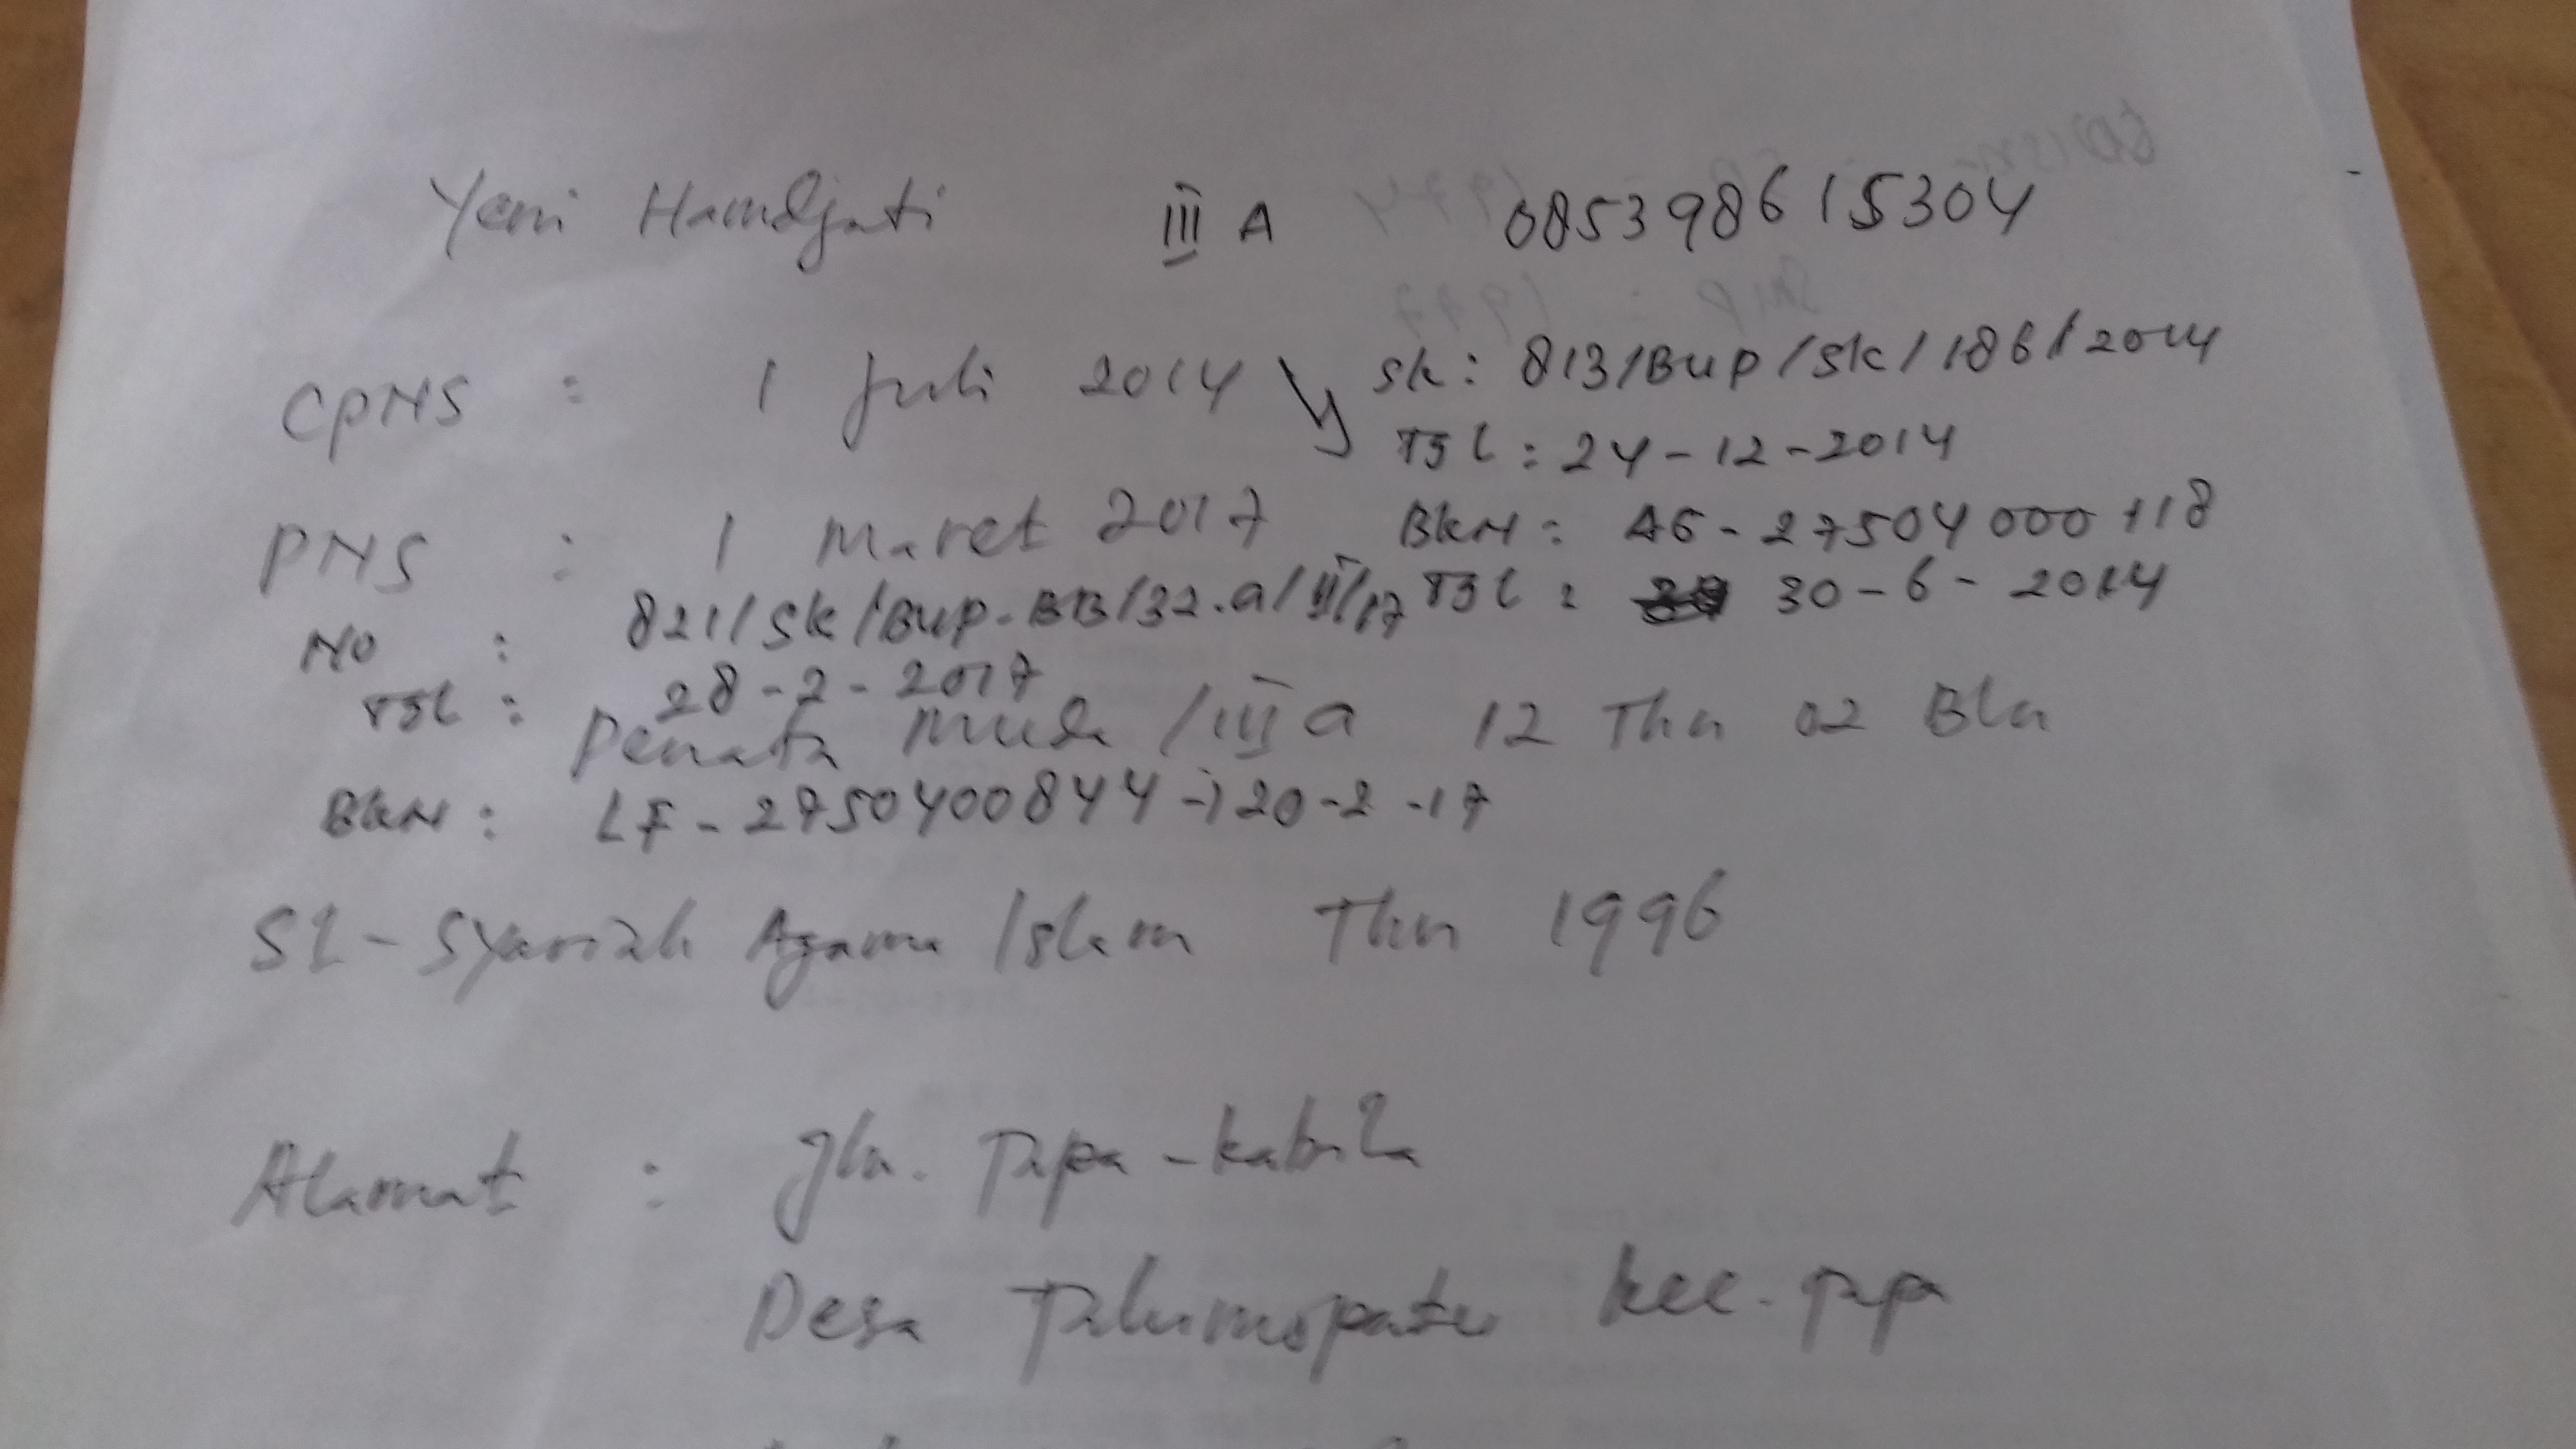 Yeni Hamdjati III A 085398615304
CPNS : 1 Juli 2014 Sk : 813/Bup/Sk/186/2014
Tgl : 24-12-2014
PNS : 1 Maret 2017 BKN : AG-27504000118
No : 821/Sk/Bup-BB/32.a/II/17 Tgl : 30-6-2014
Tgl : 28-2-2017
Penata Muda /III a 12 Thn 02 Bln
BKN : LF-2750400844 → 20-2-17
S1-Syariah Agama Islam Thn 1996
Alamat : Jln. Tapa-Kabila
Desa Talumopatu Kec. Tapa